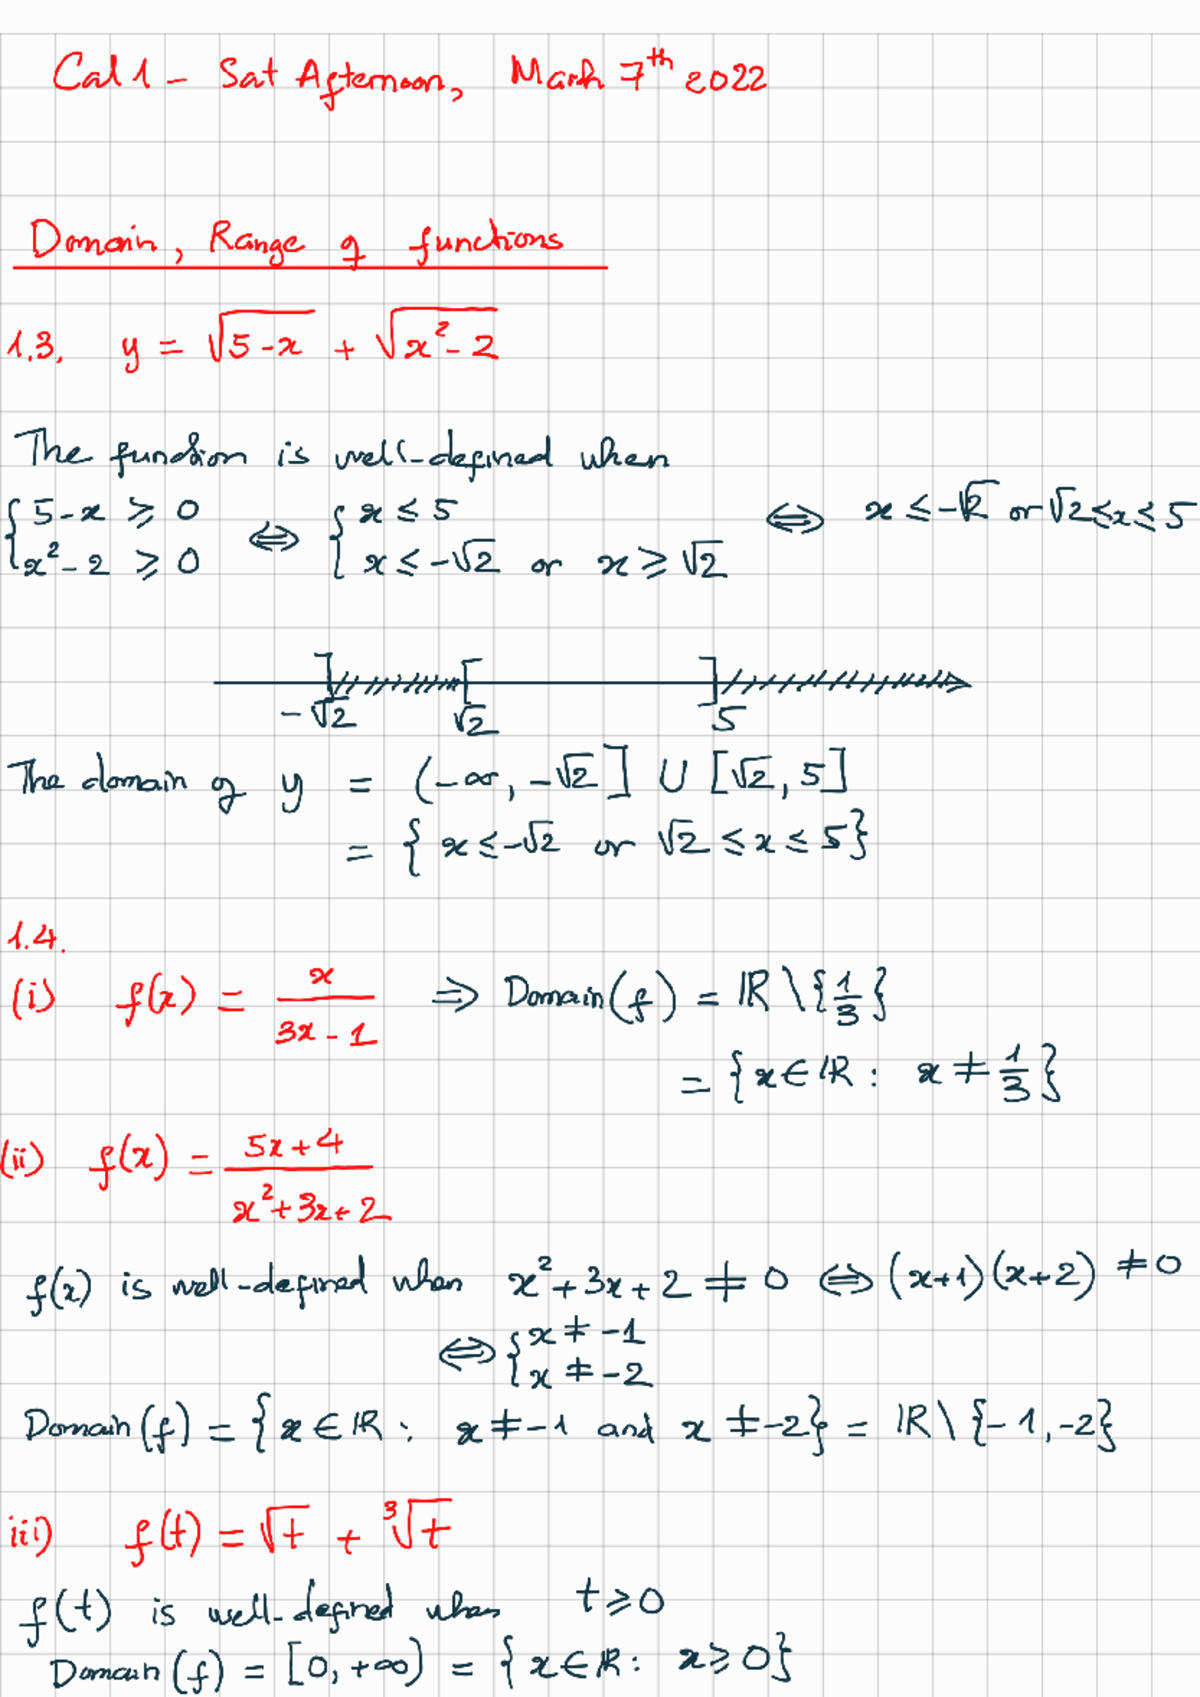 Cal 1 - Sat Afternoon, March 7th 2022
Domain, Range of functions
1.3. y = √(5-x) + √(x²-2)
The function is well-defined when
{ 5-x ≥ 0 ⇔ { x ≤ 5 ⇔ x ≤ -√2 or √2 ≤ x ≤ 5
{ x²-2 ≥ 0 { x ≤ -√2 or x ≥ √2
-√2 √2 5
The domain of y = (-∞, -√2] ∪ [√2, 5]
= { x ≤ -√2 or √2 ≤ x ≤ 5}
1.4.
(i) f(x) = x/(3x-1) ⇒ Domain(f) = ℝ \ {1/3}
= {x ∈ ℝ : x ≠ 1/3}
(ii) f(x) = (5x+4)/(x²+3x+2)
f(x) is well-defined when x²+3x+2 ≠ 0 ⇔ (x+1)(x+2) ≠ 0
⇔ { x ≠ -1
{ x ≠ -2
Domain(f) = {x ∈ ℝ : x ≠ -1 and x ≠ -2} = ℝ \ {-1, -2}
iii) f(t) = √t + ³√t
f(t) is well-defined when t ≥ 0
Domain(f) = [0, +∞) = {x ∈ ℝ : x ≥ 0}